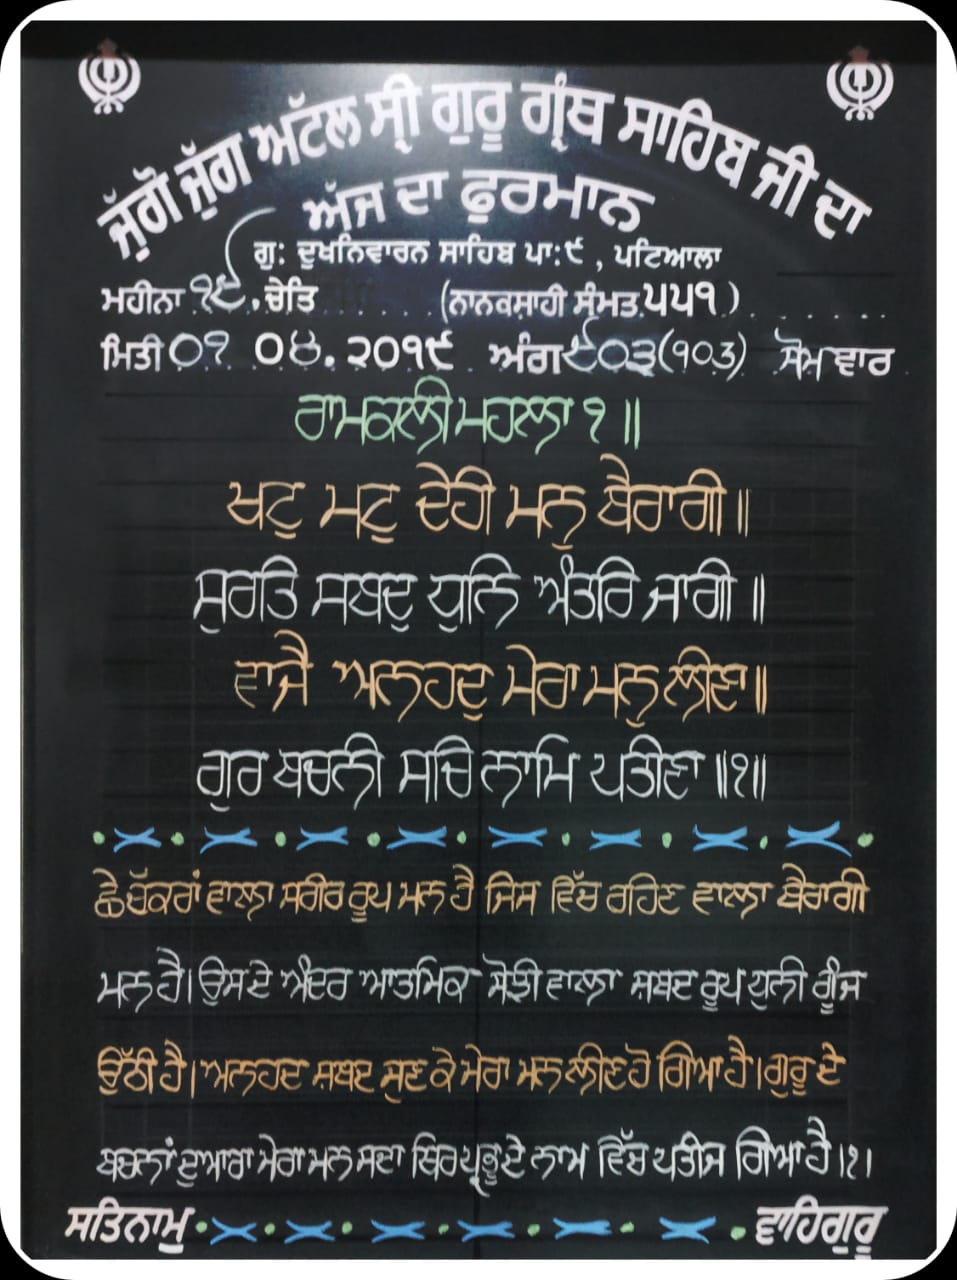 ਜੁੱਗੋ ਜੁੱਗ ਅਟੱਲ ਸ੍ਰੀ ਗੁਰੂ ਗ੍ਰੰਥ ਸਾਹਿਬ ਜੀ ਦਾ
ਅੱਜ ਦਾ ਫੁਰਮਾਨ
ਗੁ: ਦੁਖਨਿਵਾਰਨ ਸਾਹਿਬ ਪਾ:੯ , ਪਟਿਆਲਾ
ਮਹੀਨਾ ੧੯, ਚੇਤਿ (ਨਾਨਕਸ਼ਾਹੀ ਸੰਮਤ ੫੫੧)
ਮਿਤੀ ੦੧ ੦੪.੨੦੧੯ ਅੰਗ ੯੦੩(੧੦੩) ਸੋਮ ਵਾਰ
ਰਾਮਕਲੀ ਮਹਲਾ ੧ ॥
ਖਟੁ ਮਟੁ ਦੇਹੀ ਮਨੁ ਬੈਰਾਗੀ ॥
ਸੁਰਤਿ ਸਬਦੁ ਧੁਨਿ ਅੰਤਰਿ ਜਾਗੀ ॥
ਵਾਜੈ ਅਨਹਦੁ ਮੇਰਾ ਮਨੁ ਲੀਣਾ ॥
ਗੁਰ ਬਚਨੀ ਸਚਿ ਨਾਮਿ ਪਤੀਣਾ ॥੧॥
ਛੇ ਚੱਕਰਾਂ ਵਾਲਾ ਸਰੀਰ ਰੂਪ ਮਨ ਹੈ ਜਿਸ ਵਿੱਚ ਰਹਿਣ ਵਾਲਾ ਬੈਰਾਗੀ
ਮਨ ਹੈ। ਉਸਦੇ ਅੰਦਰ ਆਤਮਿਕ ਸੋਝੀ ਵਾਲਾ ਸ਼ਬਦ ਰੂਪ ਧੁਨੀ ਗੂੰਜ
ਉੱਠੀ ਹੈ। ਅਨਹਦ ਸ਼ਬਦ ਸੁਣ ਕੇ ਮੇਰਾ ਮਨ ਲੀਣ ਹੋ ਗਿਆ ਹੈ। ਗੁਰੂ ਦੇ
ਬਚਨਾਂ ਦੁਆਰਾ ਮੇਰਾ ਮਨ ਸਦਾ ਥਿਰ ਪ੍ਰਭੂ ਦੇ ਨਾਮ ਵਿੱਚ ਪਤੀਜ ਗਿਆ ਹੈ।੧।
ਸਤਿਨਾਮੁ ਵਾਹਿਗੁਰੂ